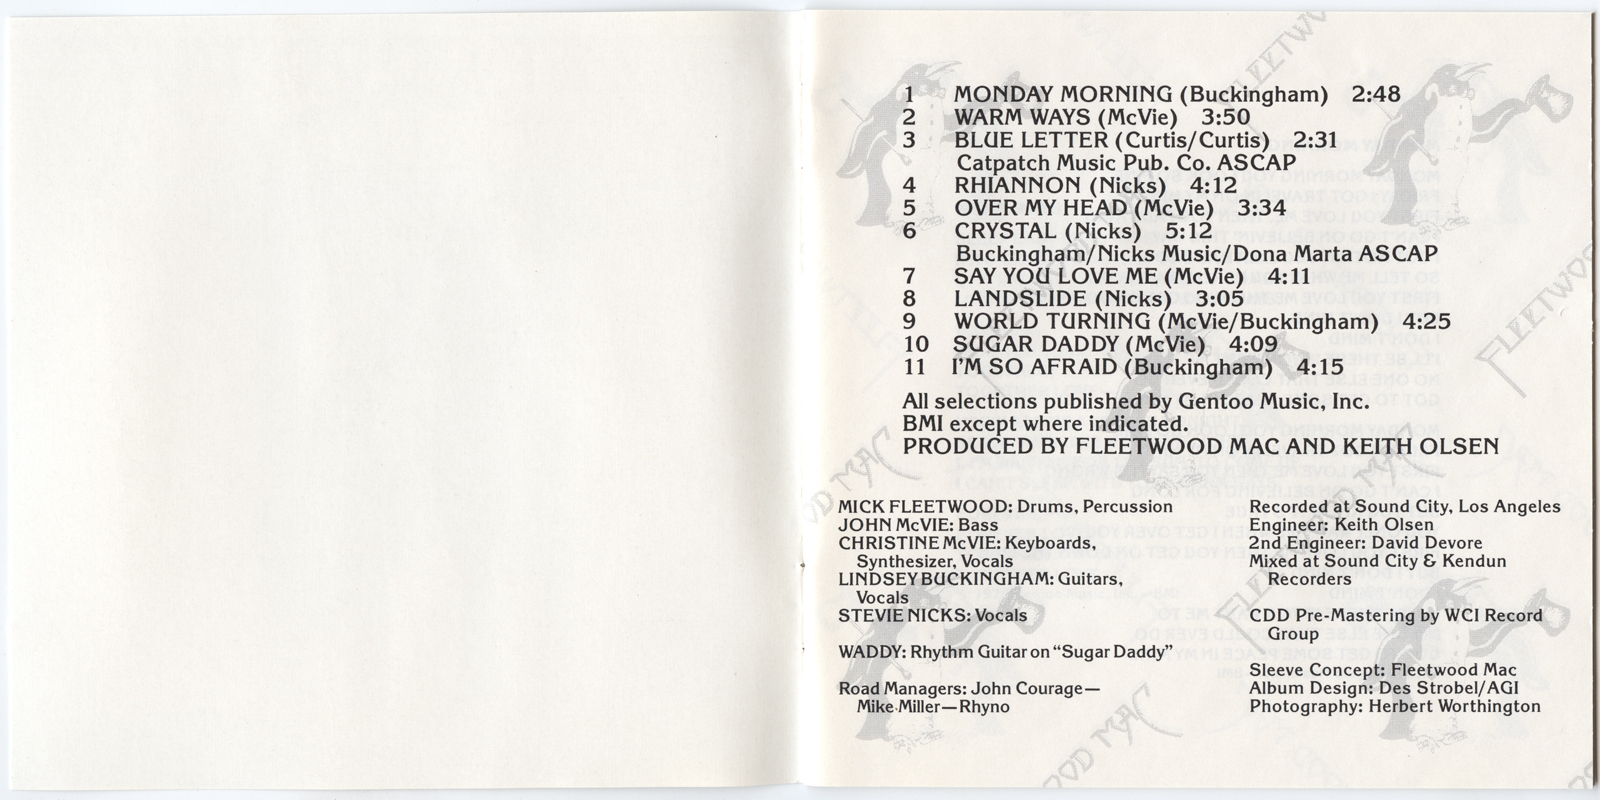 1 MONDAY MORNING (Buckingham) 2:48
2 WARM WAYS (McVie) 3:50
3 BLUE LETTER (Curtis/Curtis) 2:31
Catpatch Music Pub. Co. ASCAP
4 RHIANNON (Nicks) 4:12
5 OVER MY HEAD (McVie) 3:34
6 CRYSTAL (Nicks) 5:12
Buckingham/Nicks Music/Dona Marta ASCAP
7 SAY YOU LOVE ME (McVie) 4:11
8 LANDSLIDE (Nicks) 3:05
9 WORLD TURNING (McVie/Buckingham) 4:25
10 SUGAR DADDY (McVie) 4:09
11 I'M SO AFRAID (Buckingham) 4:15
All selections published by Gentoo Music, Inc.
BMI except where indicated.
PRODUCED BY FLEETWOOD MAC AND KEITH OLSEN
MICK FLEETWOOD: Drums, Percussion
JOHN McVIE: Bass
CHRISTINE McVIE: Keyboards,
Synthesizer, Vocals
LINDSEY BUCKINGHAM: Guitars,
Vocals
STEVIE NICKS: Vocals
WADDY: Rhythm Guitar on “Sugar Daddy”
Road Managers: John Courage—
Mike Miller—Rhyno
Recorded at Sound City, Los Angeles
Engineer: Keith Olsen
2nd Engineer: David Devore
Mixed at Sound City & Kendun
Recorders
CDD Pre-Mastering by WCI Record
Group
Sleeve Concept: Fleetwood Mac
Album Design: Des Strobel/AGI
Photography: Herbert Worthington